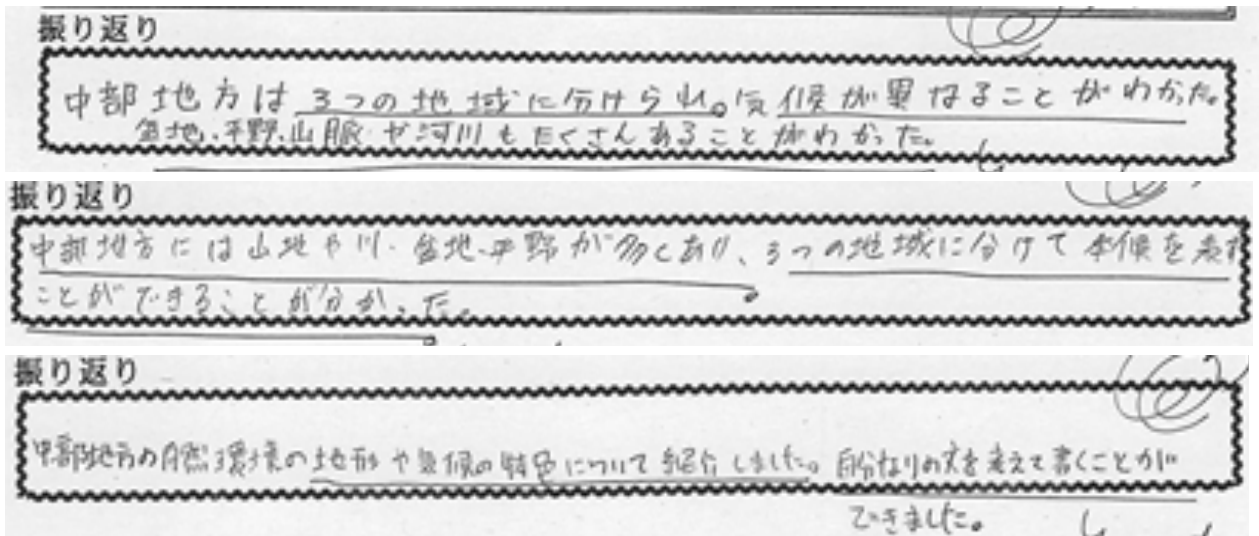 振り返り
中部地方は3つの地域に分けられ。気候が異なることがわかった。
盆地、平野、山脈や河川もたくさんあることがわかった。
振り返り
中部地方には山地や川、盆地、平野が多くあり、3つの地域に分けて気候を表す
ことができることが分かった。
振り返り
中部地方の自然環境の地形や気候の特色について紹介しました。自分なりの文を考えて書くことが
できました。